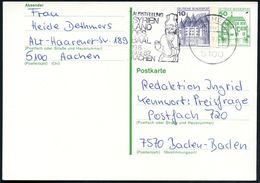 Absender
Frau
Heide Dethmers
Alt-Haarener-Str. 189
(Postfach oder Straße und Hausnummer)
5100 Aachen
(Postleitzahl) (Ort)
AUSSTELLUNG
SYRIEN
LAND
AACHEN
10
DEUTSCHE BUNDESPOST
5100
Postkarte
Redaktion Ingrid
Kennwort: Preisfrage
Postfach 720
(Postfach oder Straße und Hausnummer)
7570 Baden-Baden
(Postleitzahl) (Bestimmungsort)